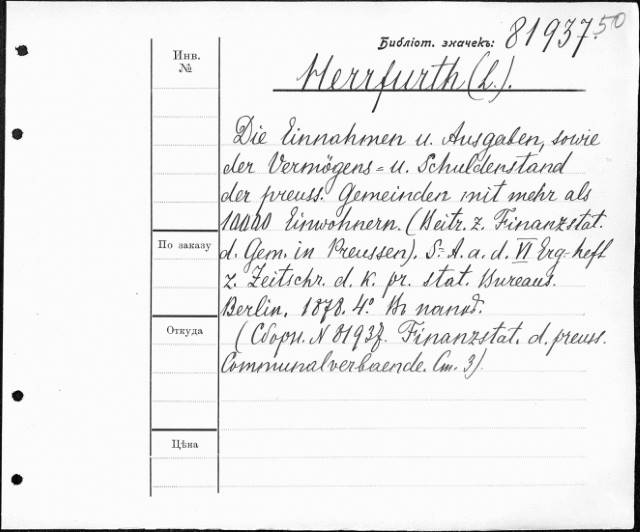 Библіот. значекъ: 81937.50
Инв.
№
Herrfurth (L.).
Die Einnahmen u. Ausgaben, sowie
der Vermögens- u. Schuldenstand
der preuss. Gemeinden mit mehr als
10000 Einwohnern. (Beitr. z. Finanzstat.
По заказу
d. Gem. in Preussen). S.-A. a. d. VI Erg-heft
z. Zeitschr. d. k. pr. stat. Bureaus.
Berlin. 1878. 4º. Въ папкѣ.
Откуда
(Сборн. N 81937. Finanzstat. d. preuss.
Communalverbaende. Ст. 3).
Цѣна